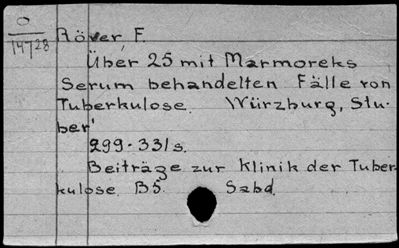 O
14728
Röver, F.
Über 25 mit Marmoreks
Serum behandelten Fälle von
Tuberkulose. Würzburg, Stu-
ber'
299-331 s.
Beiträge zur Klinik der Tuber-
kulose. B5. Sabd.